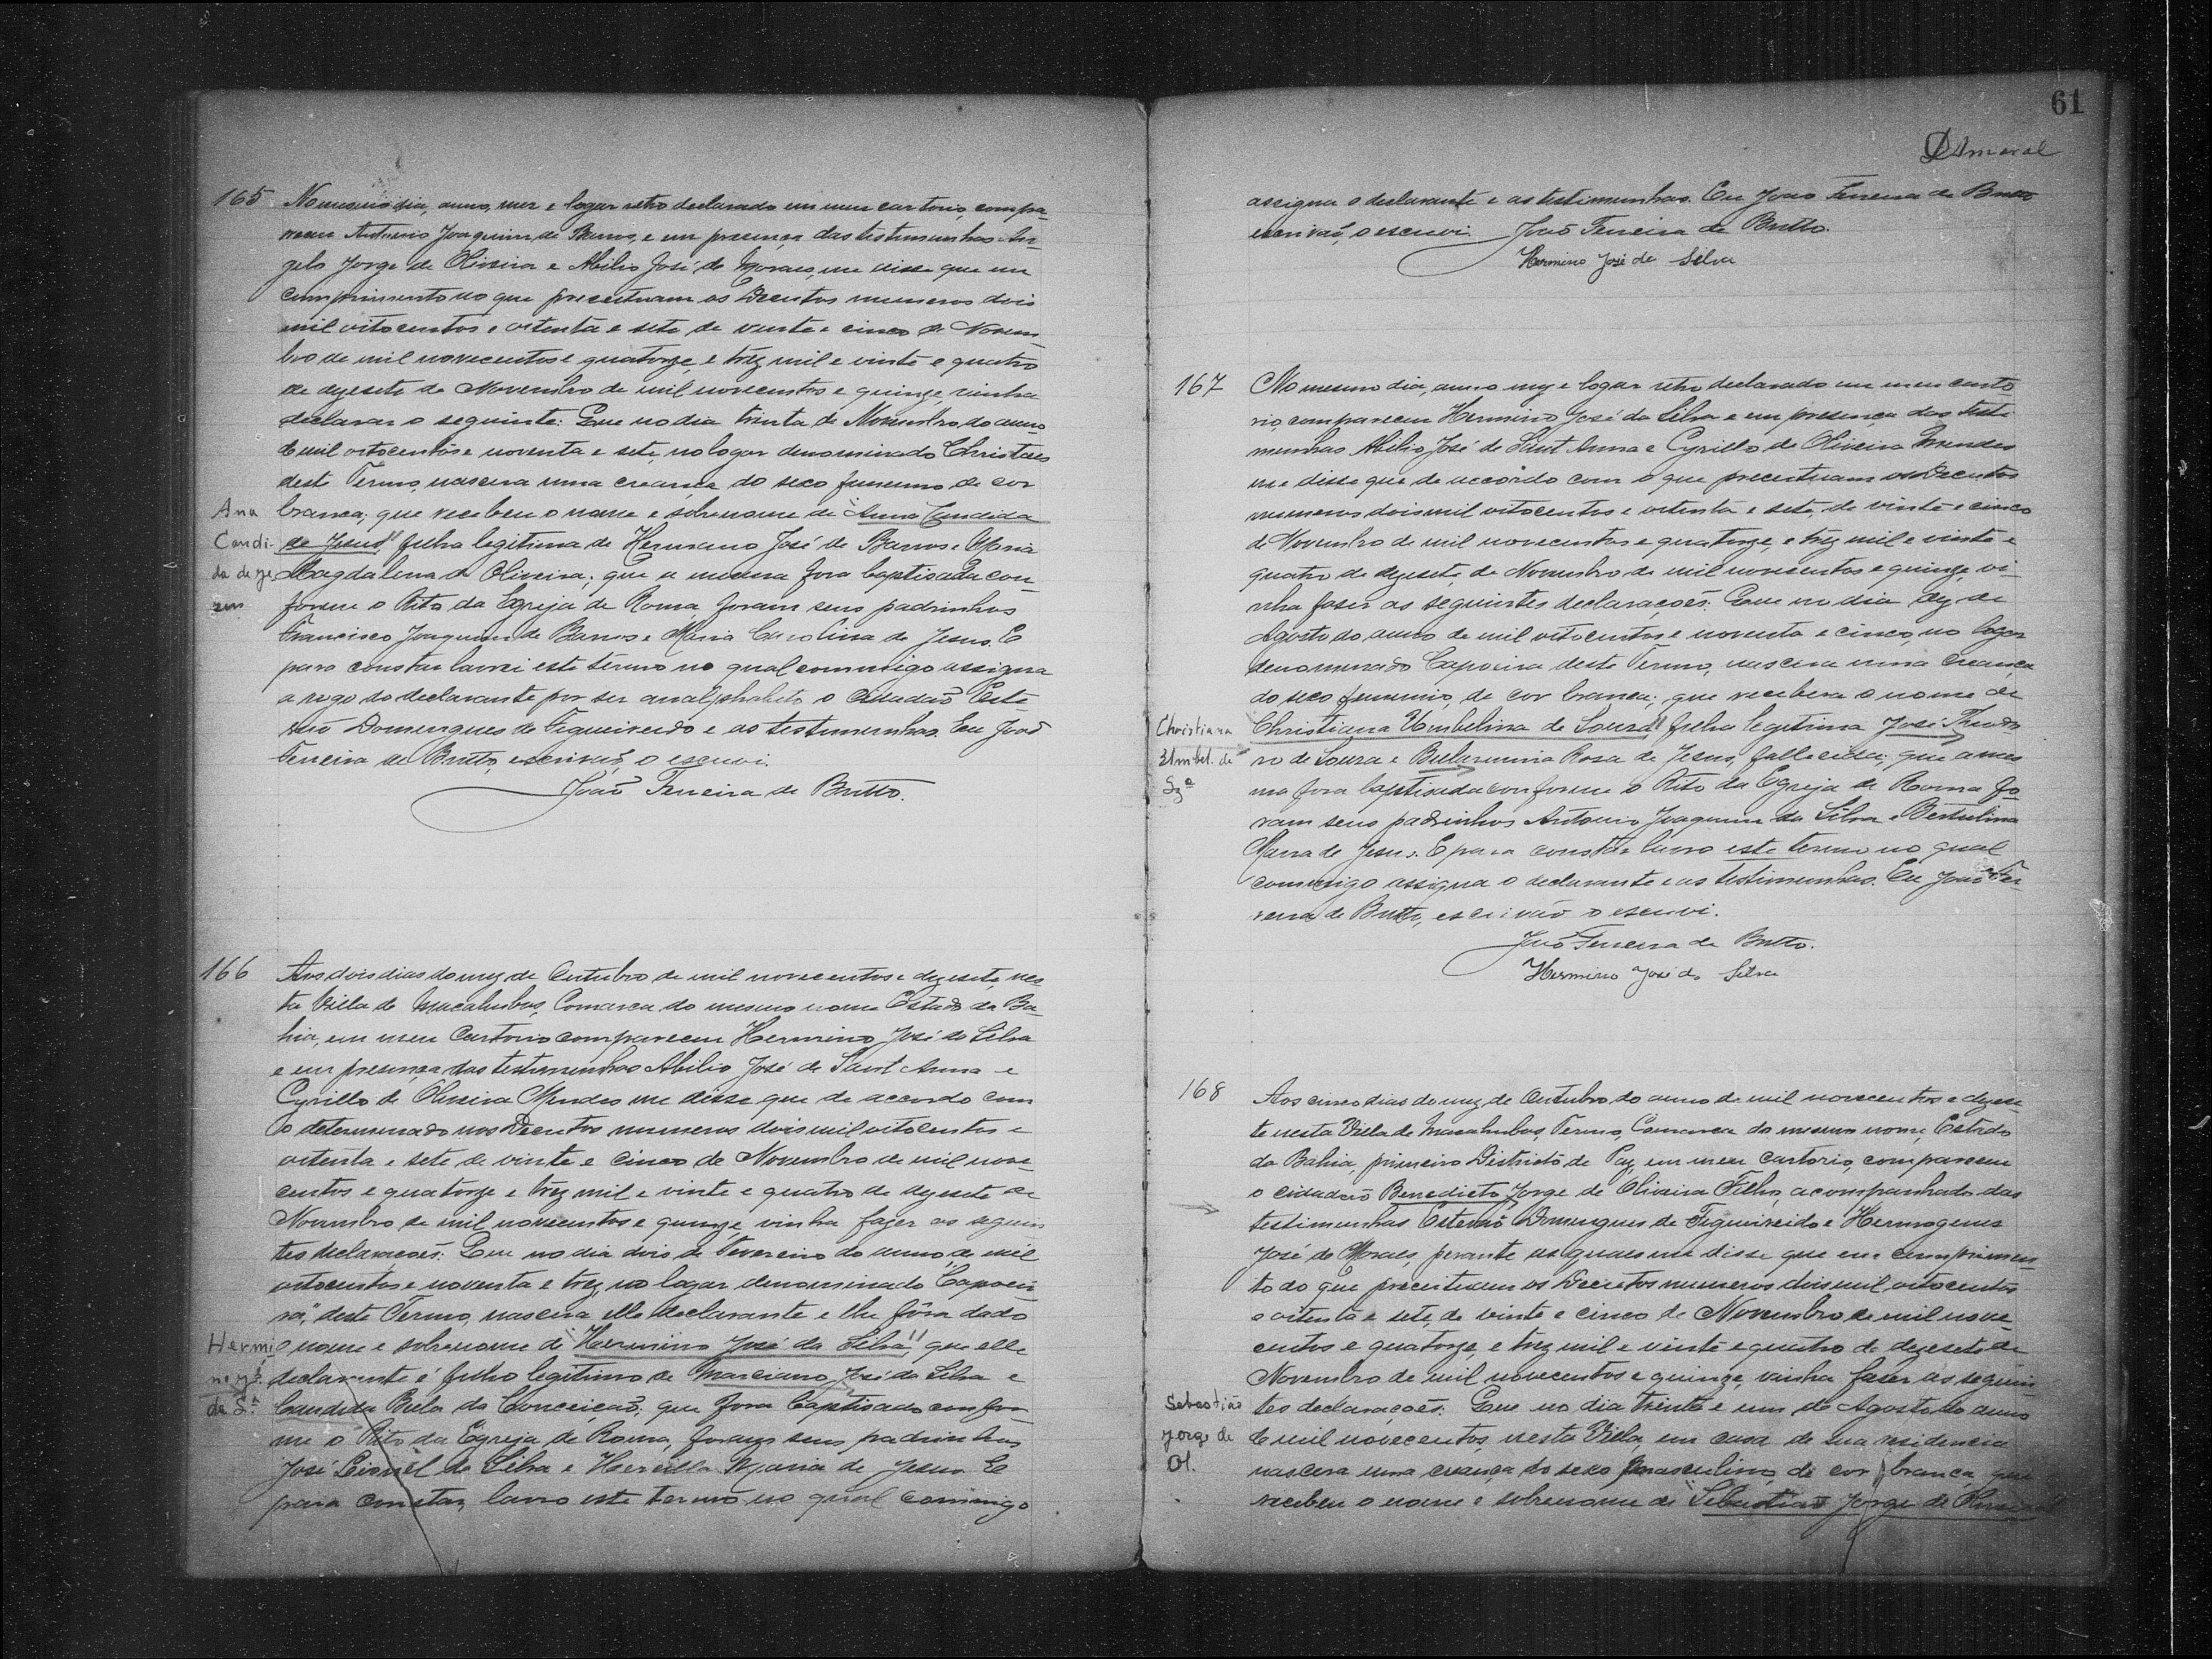 165 No mesmo dia, anno, mez e logar retro declarado em meu cartorio, compa-
receu Antonio Joaquim de Barros, e em presença das testimunhas An-
gelo Jorge de Oliveira e Abilio José de Moraes, me disse que em
comprimento ao que preceituam os Decretos numeros dois
mil oitocentos e oitenta e sete de vinte e cinco de Novem-
bro de mil novecentos e quatorze, e trez mil e vinte e quatro
de dezesete de Novembro de mil novecentos e quinze, vinha
declarar o seguinte: Que no dia trinta de Novembro do anno
de mil oitocentos e noventa e sete, no logar denominado Christaes
deste Termo, nascera uma creança do sexo femenino de cor
Ana branca; que recebeu o nome e sobrenome de "Anna Candida
Candi- de Jesus" filha legitima de Hermano José de Barros e Maria
da de Je Magdalena de Oliveira; que a mesma fora baptisada con-
zus forme o Rito da Egreja de Roma foram seus padrinhos
Francisco Joaquim de Barros e Maria Carolina de Jesus. E
para constar lavrei este têrmo no qual commigo assigna
a rogo do declarante por ser analphabeto o Cidadão Este-
vão Domingues de Figueiredo e as testimunhas. Eu João
Ferreira de Britto, escrivão, o escrevi.
João Ferreira de Britto.
166 Aos dois dias do mez de Outubro de mil novecentos e dezesete, nes-
ta Villa de Macahubas, Comarca do mesmo nome Estado da Ba-
hia, em meu Cartorio compareceu Hermino José da Silva
e em presença das testimunhas Abilio José de Sant Anna e
Cyrillo de Oliveira Mendes me disse que de accordo com
o determinado nos Decretos numeros dois mil oitocentos e
oitenta e sete de vinte e cinco de Novembro de mil nove-
centos e quatorze e trez mil e vinte e quatro de dezesete de
Novembro de mil novecentos e quinze, vinha fazer as seguin-
tes declaracoes: Que no dia dois de Fevereiro do anno de mil
oitocentos e noventa e trez, no logar denominado "Capoei-
ra", deste Termo, nascera elle declarante e lhe fôra dado
Hermi o nome e sobrenome de "Hermino José da Silva", que elle
no Jé. declarante é filho legitimo de Marciano José da Silva e
da Sª Candida Bela da Conceição; que fora baptisado confor-
me o Rito da Egreja de Roma, foram seus padrinhos
José Leonel da Silva e Hercilla Maria de Jesus. E
para constar, lavro este termo no qual commigo
61
Amaral
assigna o declarante e as testimunhas. Eu João Ferreira de Britto
escrivão, o escrevi. João Ferreira de Britto.
Hermino José da Silva
167 No mesmo dia, anno mez e logar retro declarado em meu carto-
rio, compareceu Hermino José da Silva e em presença das teste-
munhas Abilio José de Sant Anna e Cyrillo de Oliveira Mendes
me disse que de accôrdo com o que preceituam os Decretos
numeros dois mil oitocentos e oitenta e sete, de vinte e cinco
de Novembro de mil novecentos e quatorze, e trez mil e vinte e
quatro de dezesete de Novembro de mil novecentos e quinze, vi-
nha faser as seguintes declaraçoes: Que no dia dez de
Agosto do anno de mil oitocentos e noventa e cinco, no logar
denominado Capoeira deste Termo, nascera uma creança
do sexo femenino, de cor branca; que recebera o nome de
Christiana Christiana Umbelina de Souza" filha legitima José Theodo-
Umbel. de ro de Souza e Bellarmina Rosa de Jesus, fallecida; que a mes-
Szª ma fora baptisada conforme o Rito da Egreja de Roma fo-
ram seus padrinhos Antonio Joaquim da Silva e Bertulina
Maria de Jesus. E para constar lavro este termo no qual
commigo assigna o declarante e as testimunhas. Eu João Fer-
reira de Britto, escrivão o escrevi.
João Ferreira de Britto.
Hermino José da Silva
168 Aos cinco dias do mez de Outubro do anno de mil novecentos e dezese-
te nesta Villa de Macahubas, Termo, Comarca do mesmo nome, Estado
da Bahia, primeiro Districto de Paz, em meu cartorio, compareceu
o cidadão Benedicto Jorge de Oliveira Filho, acompanhado das
testimunhas Estevão Domingues de Figueireido e Hermogenes
José de Moraes, perante as quaes me disse que em comprimen-
to do que preceituam os Decretos numeros dois mil oitocentos
e oitenta e sete, de vinte e cinco de Novembro de mil nove-
centos e quatorze, e trez mil e vinte e quatro de dezesete de
Novembro de mil novecentos e quinze, vinha faser as seguin-
Sebastião tes declaraçoes: Que no dia trinta e um de Agosto do anno
Jorge de de mil novecentos, nesta Villa, em casa de sua residencia
Ol. nascera uma creança do sexo masculino, de cor branca, que
recebeu o nome e sobrenome de "Sebastião Jorge de Oliveira